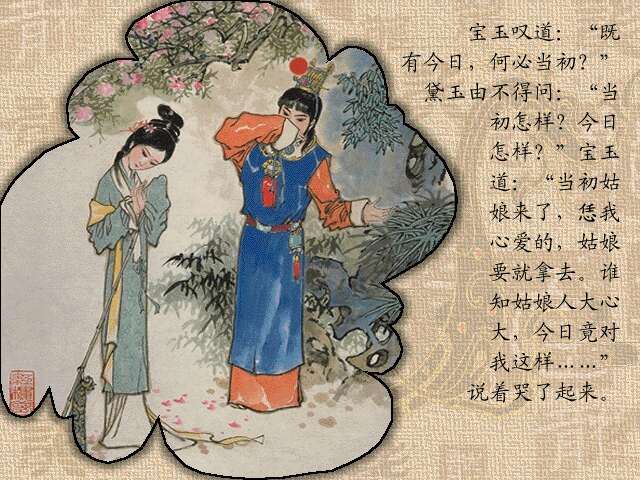 宝玉叹道：“既
有今日，何必当初？”
黛玉由不得问：“当
初怎样？今日
怎样？”宝玉
道：“当初姑
娘来了，恁我
心爱的，姑娘
要就拿去。谁
知姑娘人大心
大，今日竟对
我这样……”
说着哭了起来。